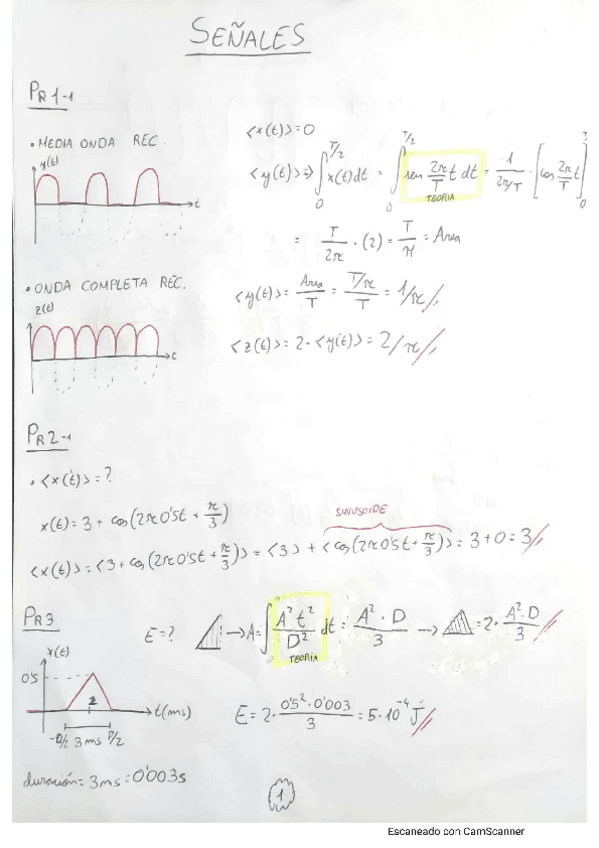 SEÑALES
PR1-1
• MEDIA ONDA REC.
y(t)
t
<x(t)> = 0
<y(t)> => ∫₀^{T/2} x(t)dt = ∫₀^{T/2} sen 2π/T t dt = 1/(2π/T) · [cos 2π/T t]₀
TEORIA
= T/2π · (2) = T/π = Area
• ONDA COMPLETA REC.
z(t)
t
<y(t)> = Area/T = (T/π)/T = 1/π
<z(t)> = 2 · <y(t)> = 2/π
PR2-1
• <x(t)> = ?
x(t) = 3 + cos(2π0'5t + π/3)
SINUSOIDE
<x(t)> = <3 + cos(2π0'5t + π/3)> = <3> + <cos(2π0'5t + π/3)> = 3 + 0 = 3
PR3
E = ? → A = ∫ A²t²/D² dt = A²·D/3 → = 2 · A²·D/3
TEORIA
x(t)
0'5
t(ms)
-D/2 3ms D/2
E = 2 · 0'5²·0'003/3 = 5·10⁻⁴ J
duración = 3ms = 0'003s
1
Escaneado con CamScanner